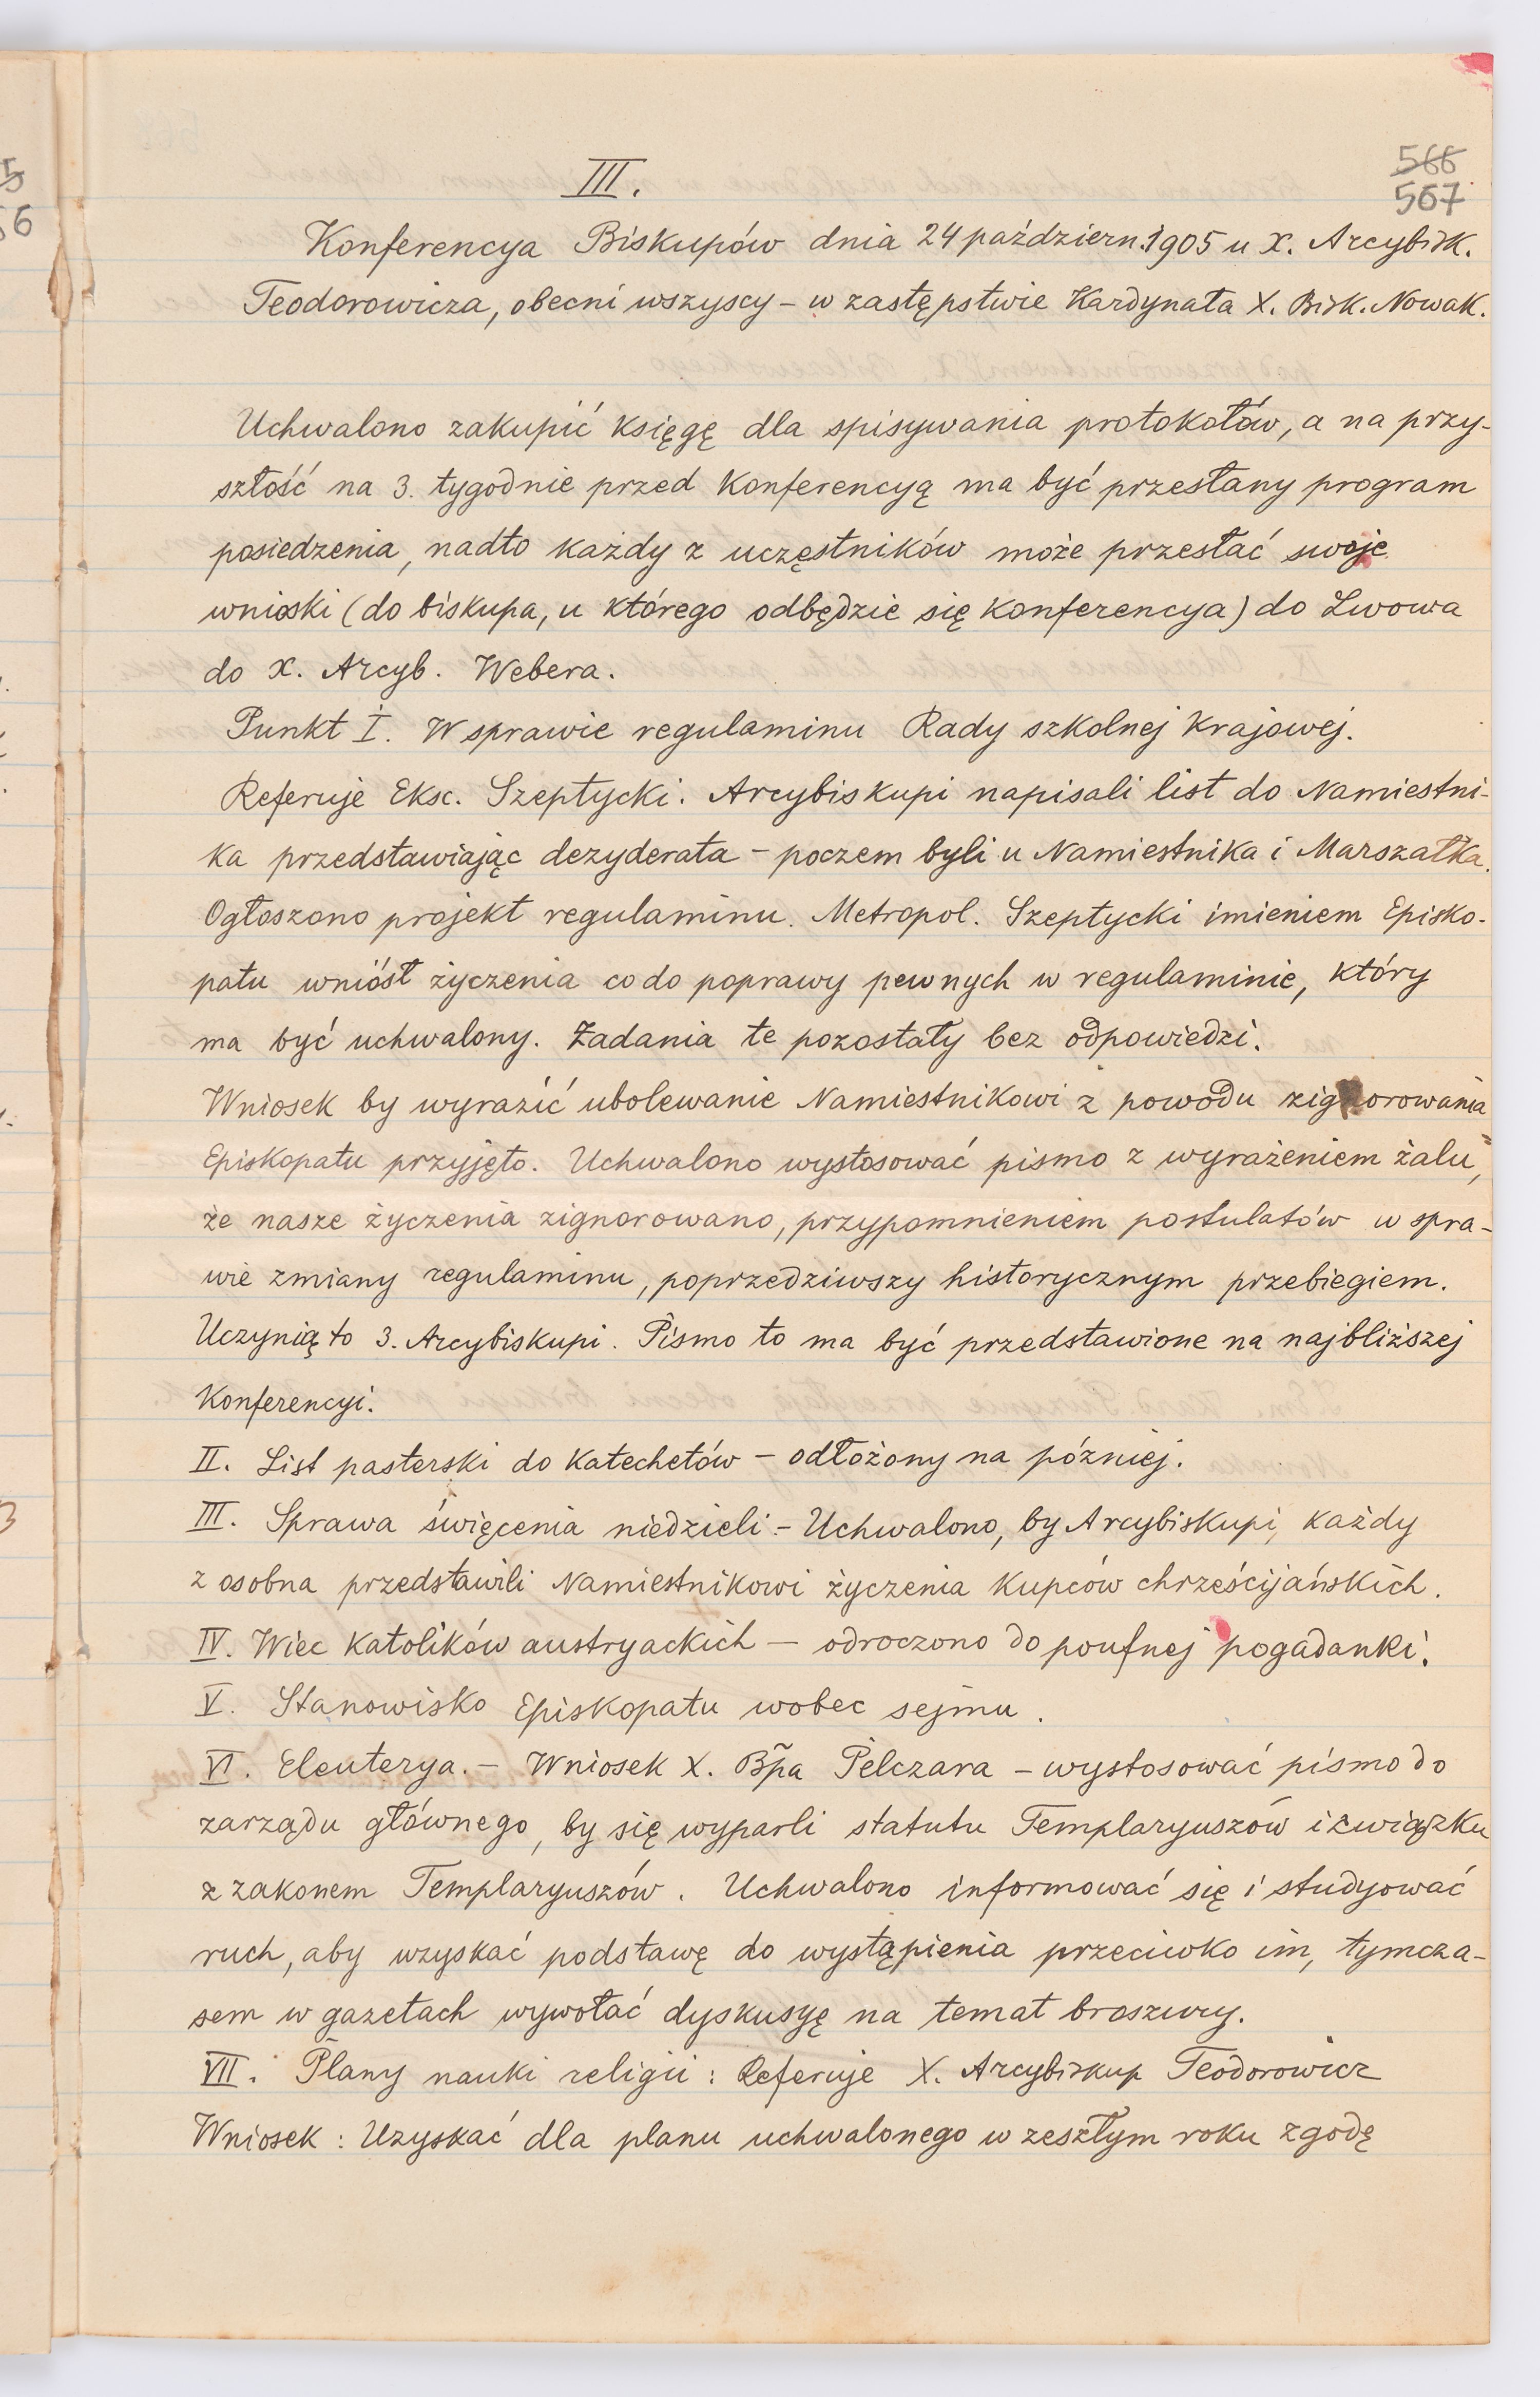 III.
566
567
Konferencya Biskupów dnia 24 październ. 1905 u X. Arcybisk.
Teodorowicza, obecni wszyscy – w zastępstwie Kardynała X. Bisk. Nowak.
Uchwalono zakupić księgę dla spisywania protokołów, a na przy-
szłość na 3. tygodnie przed Konferencyą ma być przesłany program
posiedzenia, nadto każdy z uczęstników może przesłać swoje
wnioski (do biskupa, u którego odbędzie się Konferencya) do Lwowa
do X. Arcyb. Webera.
Punkt I. W sprawie regulaminu Rady szkolnej Krajowej.
Referuje Eksc. Szeptycki. Arcybiskupi napisali list do Namiestni-
ka przedstawiając dezyderata – poczem byli u Namiestnika i Marszałka.
Ogłoszono projekt regulaminu. Metropol. Szeptycki imieniem Episko-
patu wniósł życzenia co do poprawy pewnych w regulaminie, który
ma być uchwalony. Żadania te pozostały bez odpowiedzi.
Wniosek by wyrazić ubolewanie Namiestnikowi z powodu zignorowania
Episkopatu przyjęto. Uchwalono wystosować pismo z wyrażeniem żalu,
że nasze życzenia zignorowano, przypomnieniem postulatów w spra-
wie zmiany regulaminu, poprzedziwszy historycznym przebiegiem.
Uczynią to 3. Arcybiskupi. Pismo to ma być przedstawione na najbliższej
Konferencyi.
II. List pasterski do Katechetów – odłożony na później.
III. Sprawa święcenia niedzieli – Uchwalono, by Arcybiskupi, każdy
z osobna przedstawili Namiestnikowi życzenia Kupców chrześcijańskich.
IV. Wiec Katolików austryackich — odroczono do poufnej pogadanki.
V. Stanowisko Episkopatu wobec sejmu.
VI. Eleuterya. – Wniosek X. Bpa Pelczara – wystosować pismo do
zarządu głównego, by się wyparli statutu Templaryuszów i związku
z zakonem Templaryuszów. Uchwalono informować się i studyować
ruch, aby uzyskać podstawę do wystąpienia przeciwko im, tymcza-
sem w gazetach wywołać dyskusyę na temat broszury.
VII. Plany nauki religii: Referuje X. Arcybiskup Teodorowicz
Wniosek: Uzyskać dla planu uchwalonego w zeszłym roku zgodę